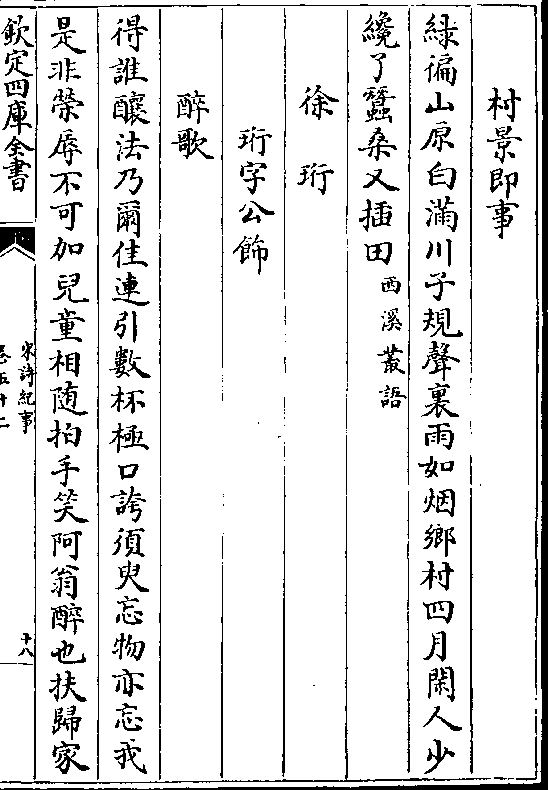 村景即事
緑徧山原白滿川子規聲裏雨如烟鄉村四月閑人少
纔了蠶桑又插田西溪叢語
徐珩
珩字公飾
醉歌
得誰釀法乃爾佳連引數杯極口誇須臾忘物亦忘我
是非榮辱不可加兒童相随拍手笑阿翁醉也扶歸家
欽定四庫全書
宋詩紀事
卷五十二
十八